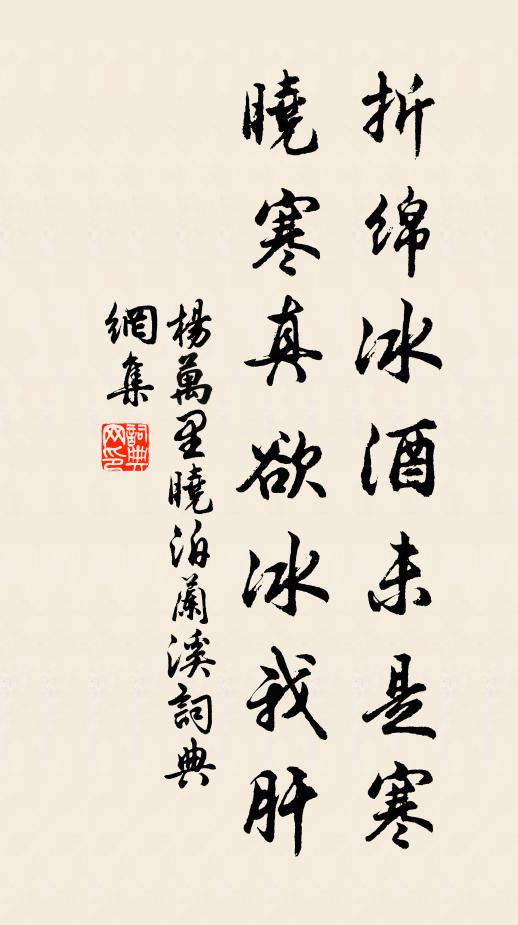 折绵冰酒未是寒
曉寒真欲冰我肝
楊萬里曉泊蘭溪詞典
網集
詞典
网印